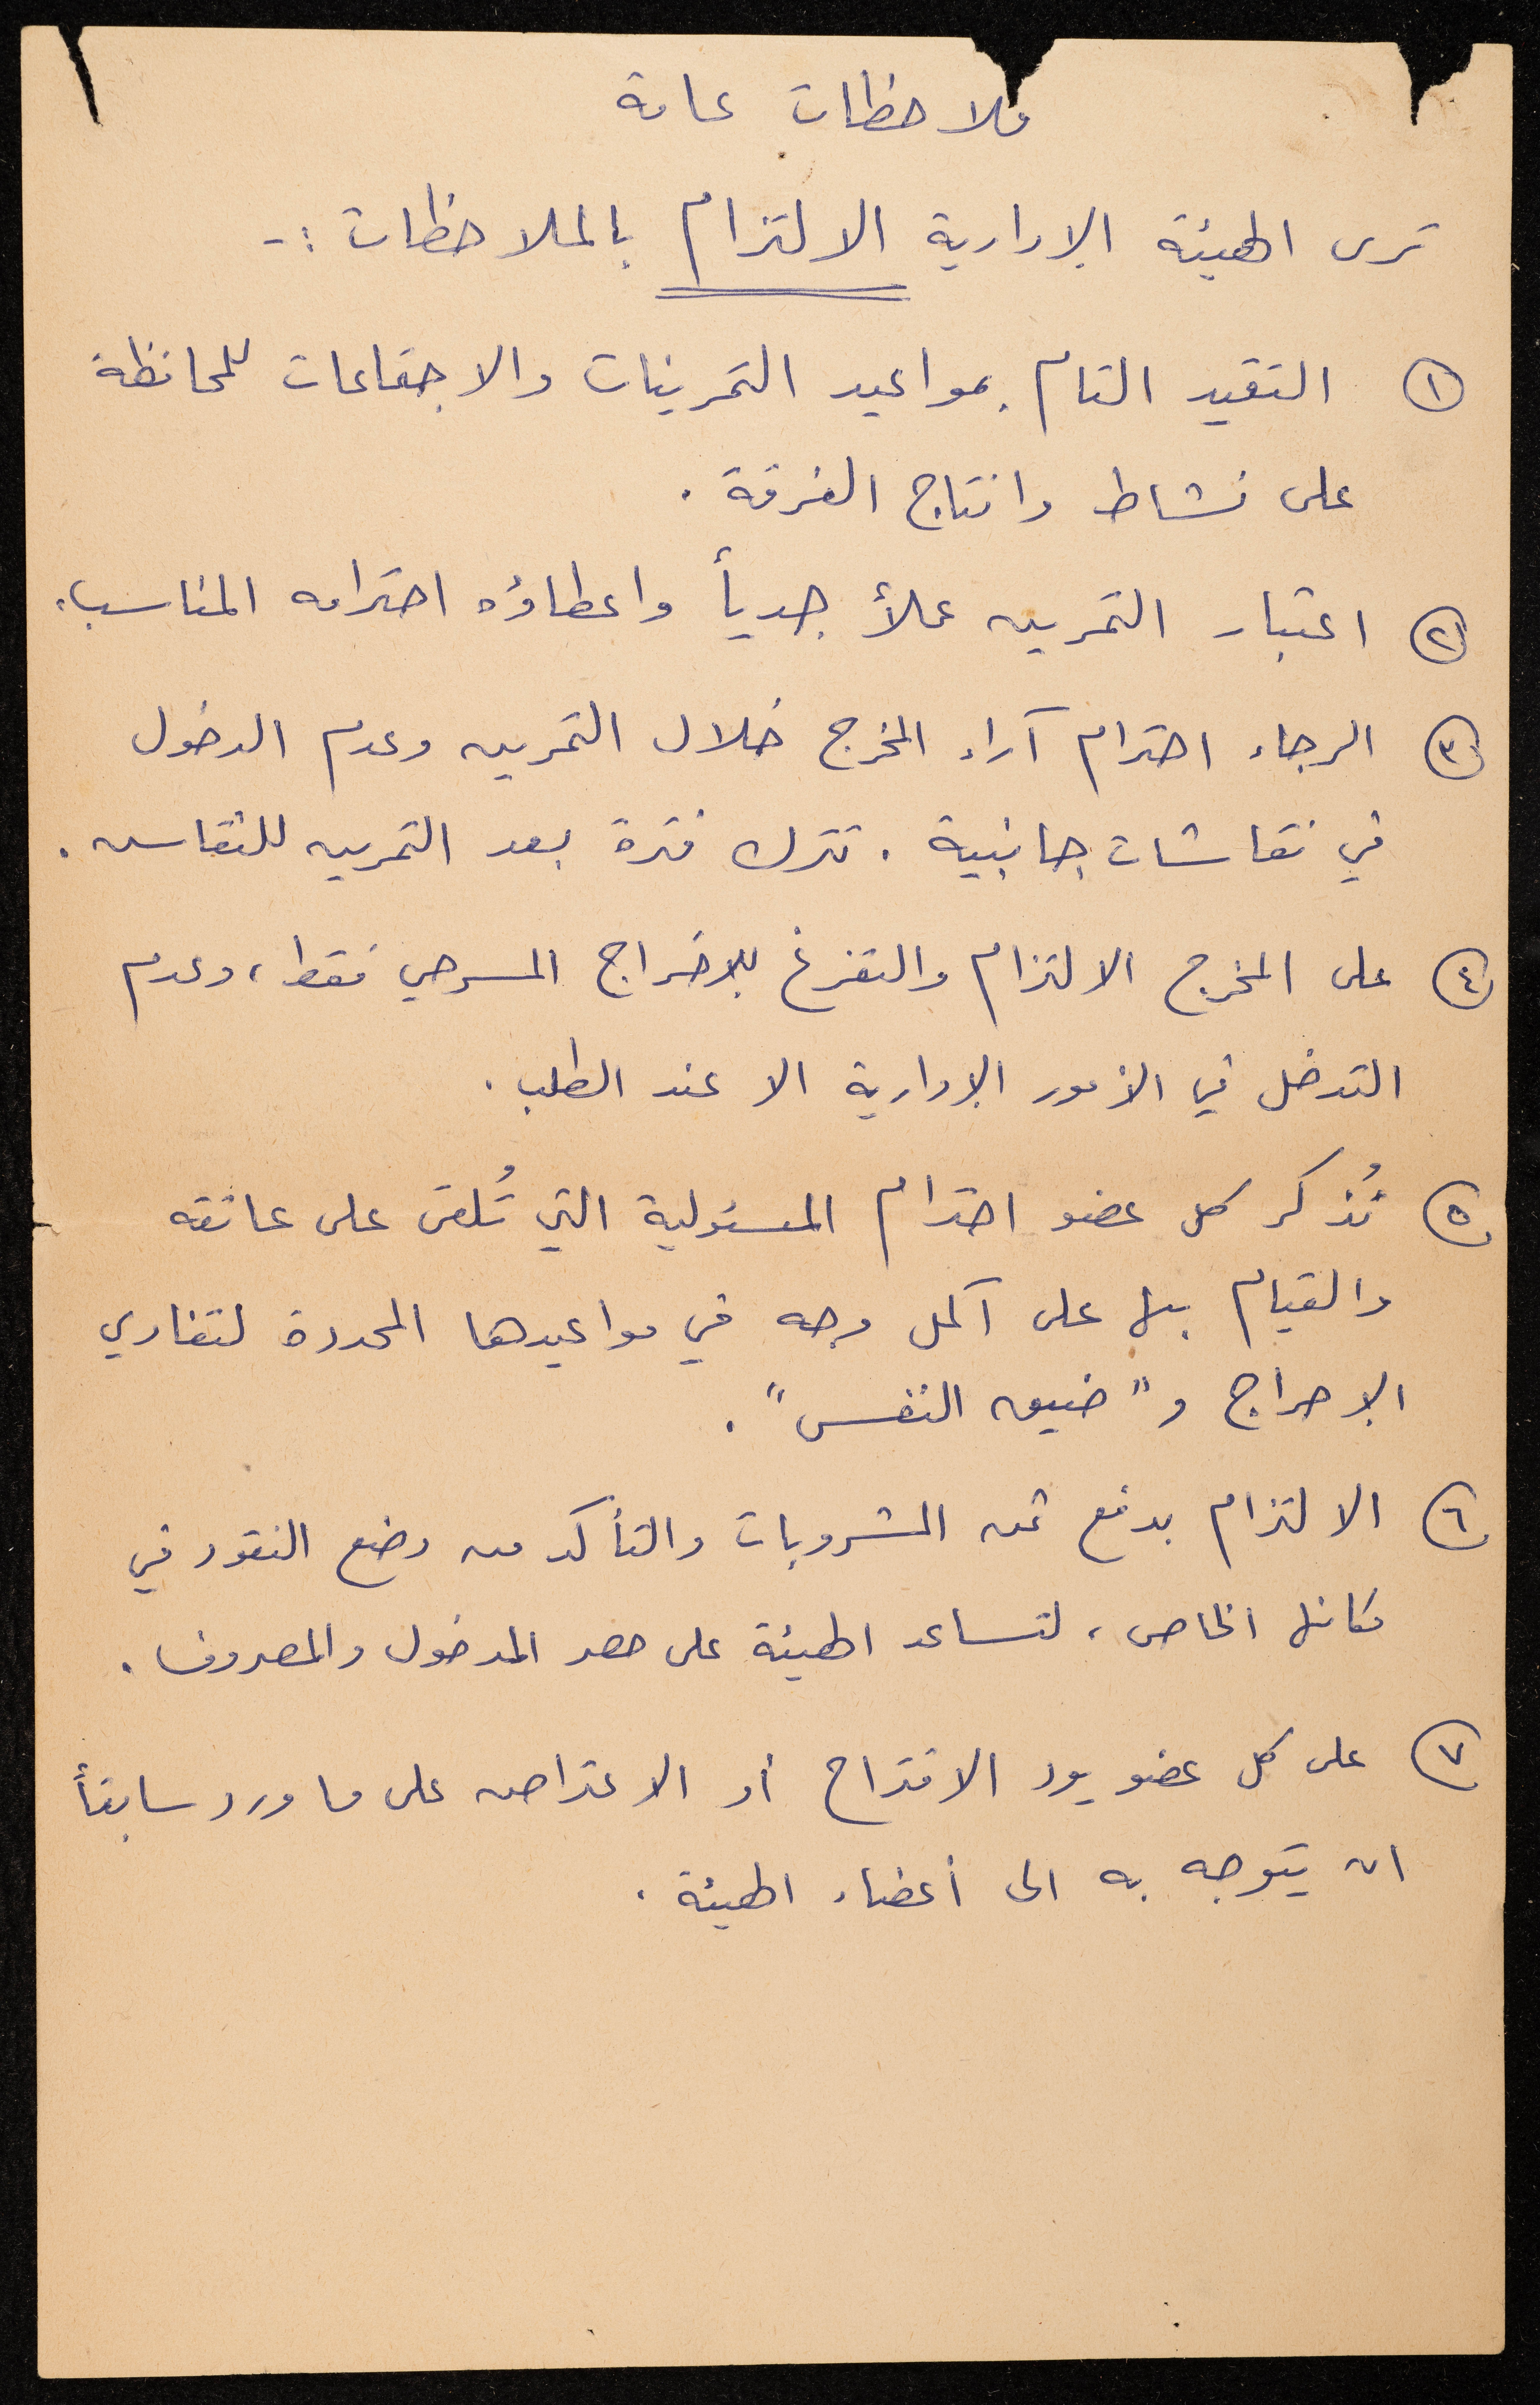 ملاحظات عامة
ترى الهيئة الإدارية الالتزام بالملاحظات :-
١ التقيد التام بمواعيد التمرينات والاجتماعات للمحافظة
على نشاط وانتاج الفرقة .
٢ اعتبار التمرين عملاً جدياً واعطاؤه احترامه المناسب .
٣ الرجاء احترام آراء المخرج خلال التمرين وعدم الدخول
في نقاشات جانبية . تترك فترة بعد التمرين للنقاش .
٤ على المخرج الالتزام والتفرغ للإخراج المسرحي فقط ، وعدم
التدخل في الأمور الإدارية الا عند الطلب .
٥ نُذكر كل عضو احترام المسئولية التي تُلقى على عاتقه
والقيام بها على أكمل وجه في مواعيدها المحددة لتفادي
الإحراج و "ضيق النفس" .
٦ الالتزام بدفع ثمن المشروبات والتأكد من وضع النقود في
مكانها الخاص ، لتساعد الهيئة على حصر المدخول والمصروف .
٧ على كل عضو يود الاقتراح أو الاعتراض على ما ورد سابقاً
ان يتوجه به الى أعضاء الهيئة .